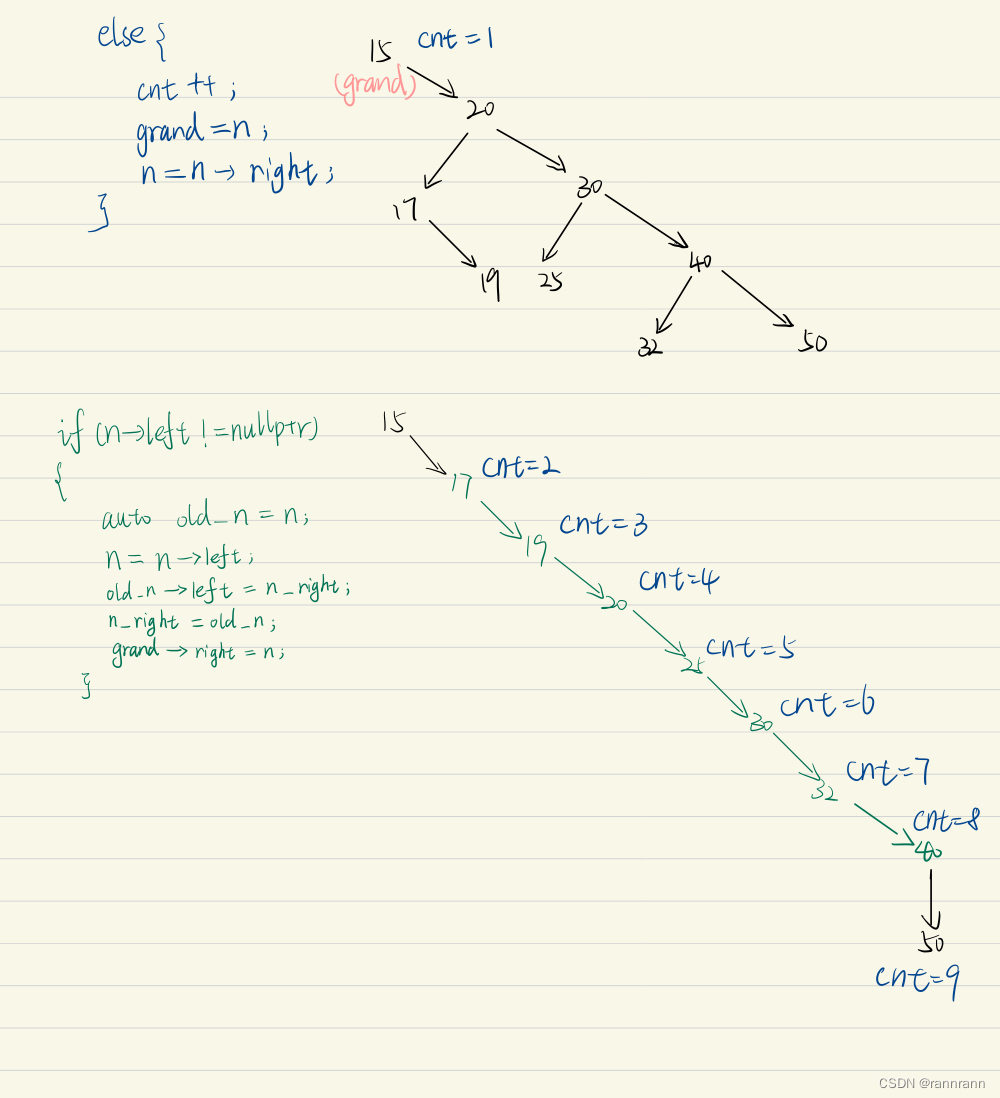 else {
cnt ++ ;
grand = n ;
n = n → right ;
}
15 cnt = 1
(grand)
20
17 30
19 25 40
32 50
if (n→left != nullptr)
{
auto old_n = n;
n = n →left ;
old_n →left = n_right ;
n_right = old_n ;
grand → right = n ;
}
15
17 cnt=2
19 cnt=3
20 cnt=4
25 cnt=5
30 cnt=6
32 cnt=7
40 cnt=8
50
cnt=9
CSDN @rannrann